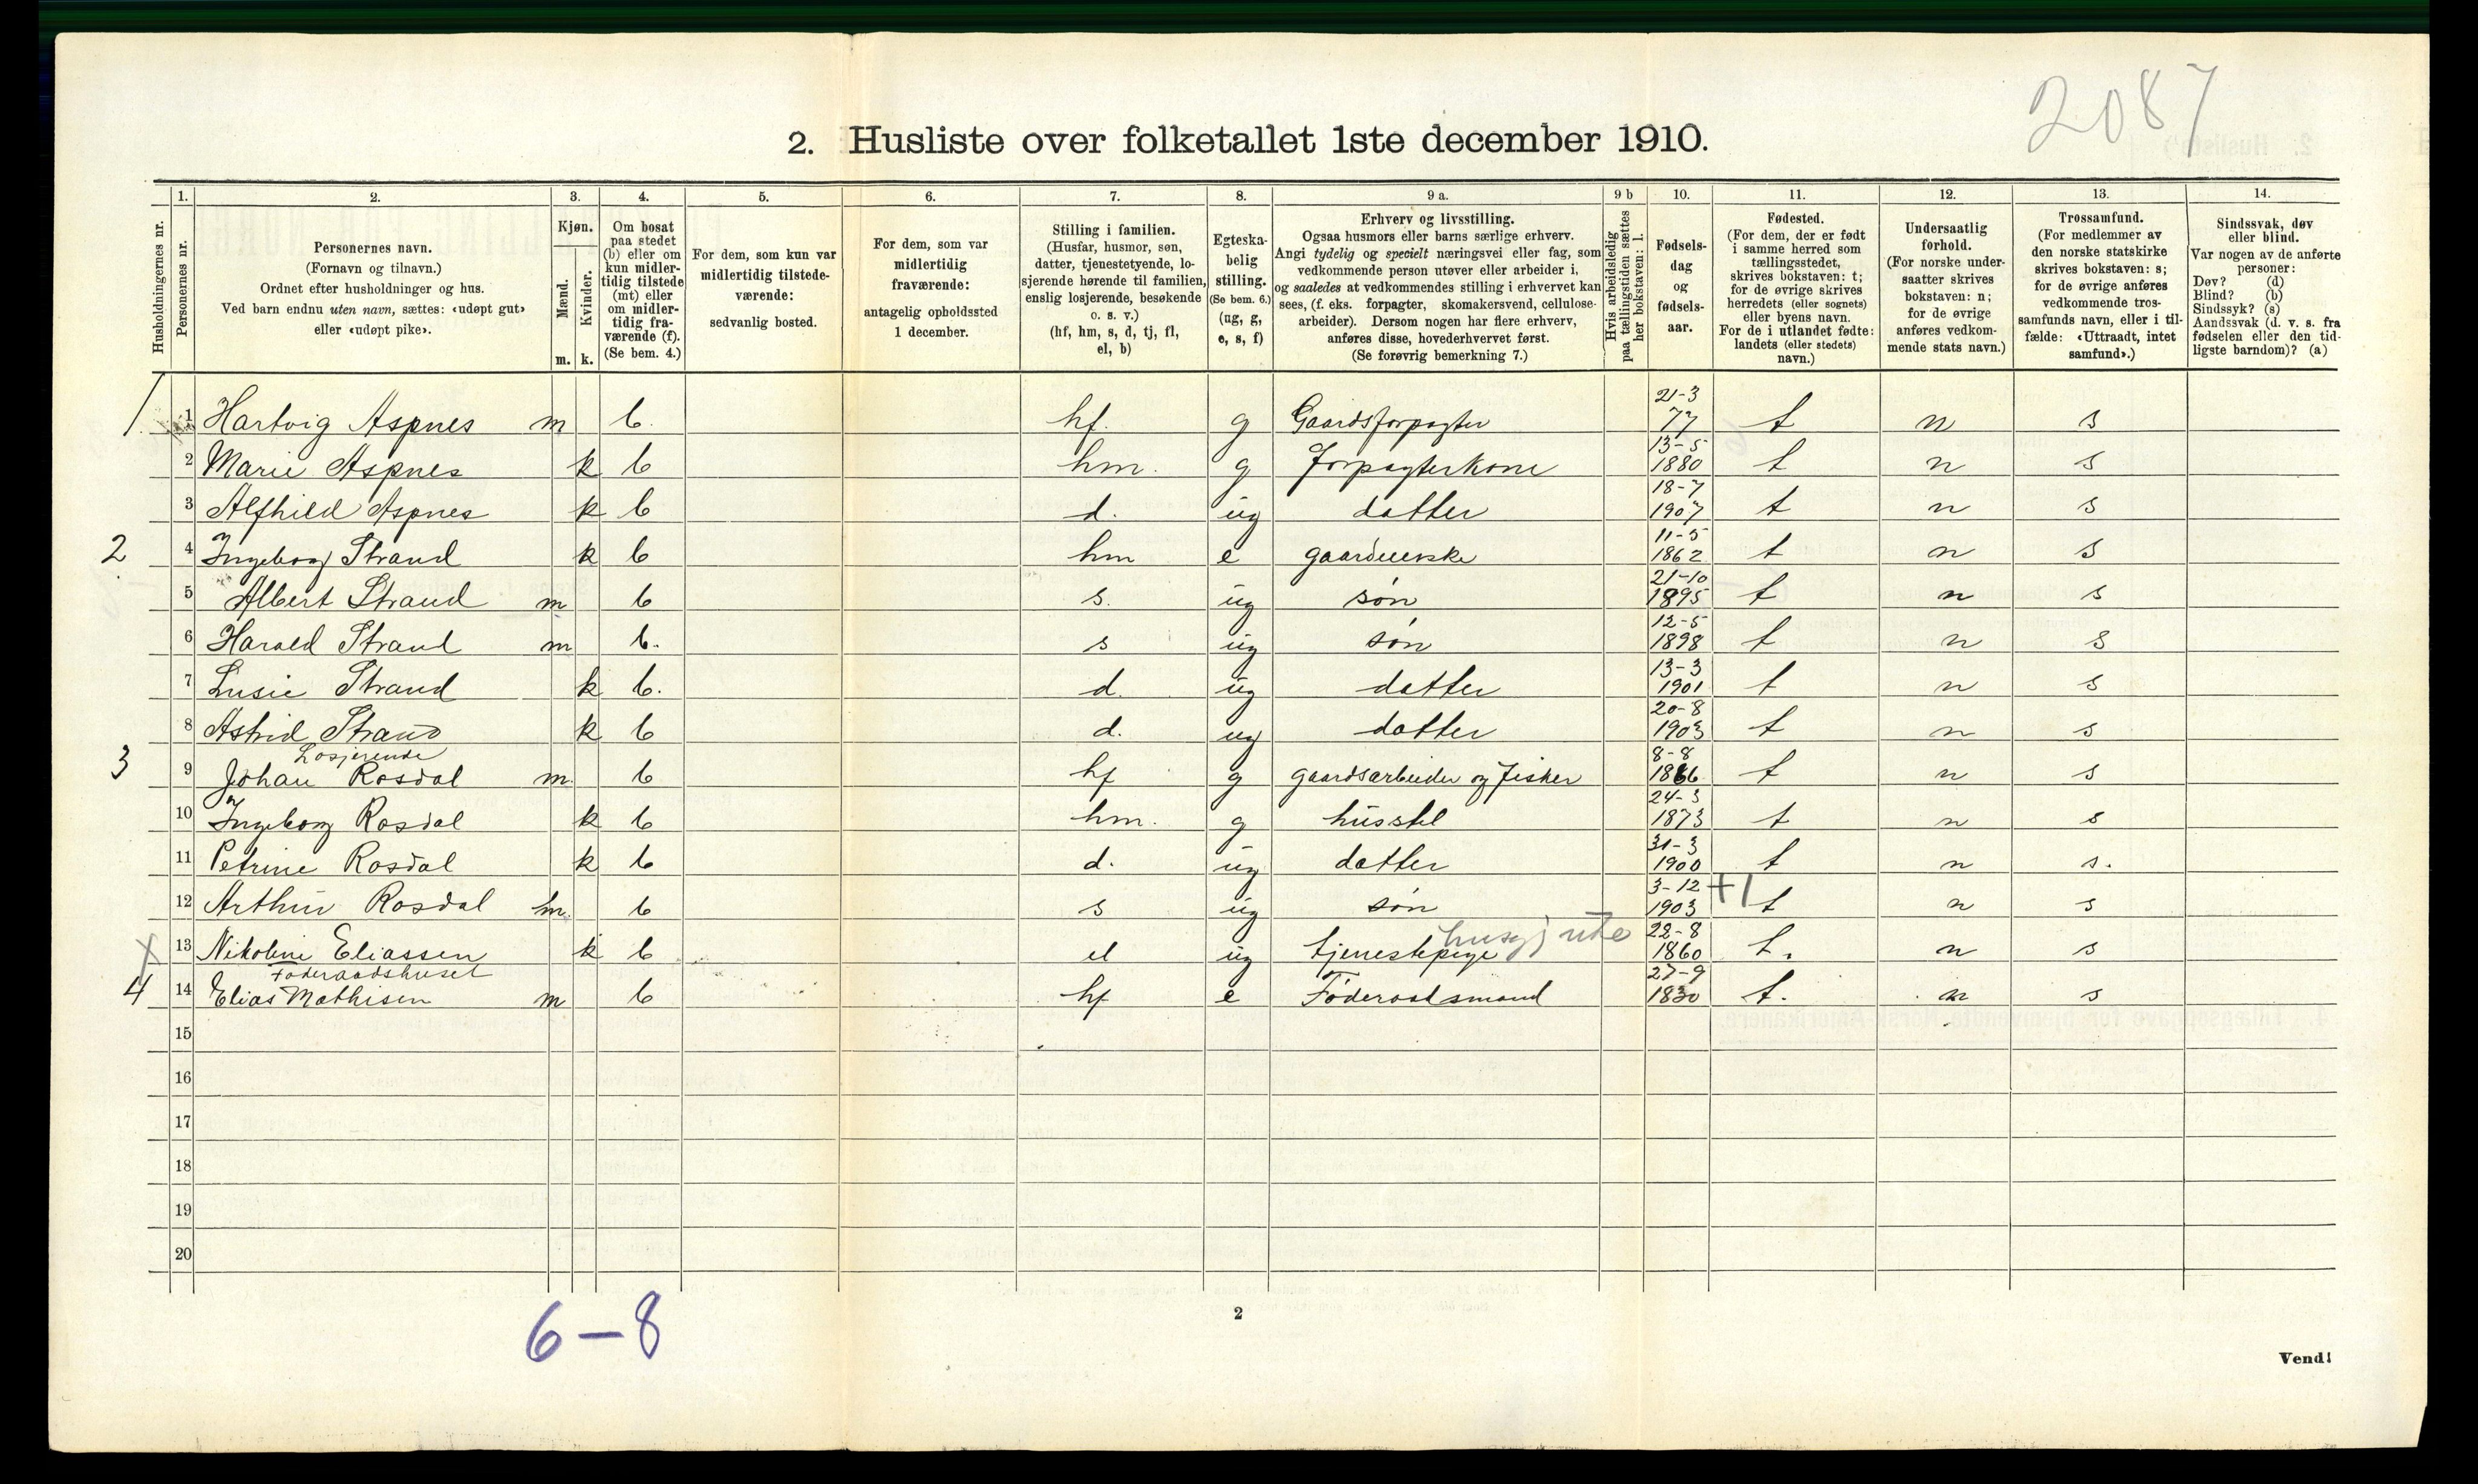 2087
2. Husliste over folketallet 1ste december 1910.
1. 2. 3. 4. 5. 6. 7. 8. 9 a. 9 b 10. 11. 12. 13. 14.
Husholdningernes nr.
Personernes nr.
Personernes navn.
(Fornavn og tilnavn.)
Ordnet efter husholdninger og hus.
Ved barn endnu uten navn, sættes: «udøpt gut»
eller «udøpt pike».
Kjøn.
Mænd.
Kvinder.
m. k.
Om bosat
paa stedet
(b) eller om
kun midler-
tidig tilstede
(mt) eller
om midler-
tidig fra-
værende (f).
(Se bem. 4.)
For dem, som kun var
midlertidig tilstede-
værende:
sedvanlig bosted.
For dem, som var
midlertidig
fraværende:
antagelig opholdssted
1 december.
Stilling i familien.
(Husfar, husmor, søn,
datter, tjenestetyende, lo-
sjerende hørende til familien,
enslig losjerende, besøkende
o. s. v.)
(hf, hm, s, d, tj, fl,
el, b)
Egteska-
belig
stilling.
(Se bem. 6.)
(ug, g,
e, s, f)
Erhverv og livsstilling.
Ogsaa husmors eller barns særlige erhverv.
Angi tydelig og specielt næringsvei eller fag, som
vedkommende person utøver eller arbeider i,
og saaledes at vedkommendes stilling i erhvervet kan
sees, (f. eks. forpagter, skomakersvend, cellulose-
arbeider). Dersom nogen har flere erhverv,
anføres disse, hovederhvervet først.
(Se forøvrig bemerkning 7.)
Hvis arbeidsledig
paa tællingstiden sættes
her bokstaven: l.
Fødsels-
dag
og
fødsels-
aar.
Fødested.
(For dem, der er født
i samme herred som
tællingsstedet,
skrives bokstaven: t;
for de øvrige skrives
herredets (eller sognets)
eller byens navn.
For de i utlandet fødte:
landets (eller stedets)
navn.)
Undersaatlig
forhold.
(For norske under-
saatter skrives
bokstaven: n;
for de øvrige
anføres vedkom-
mende stats navn.)
Trossamfund.
(For medlemmer av
den norske statskirke
skrives bokstaven: s;
for de øvrige anføres
vedkommende tros-
samfunds navn, eller i til-
fælde: «Uttraadt, intet
samfund».)
Sindssvak, døv
eller blind.
Var nogen av de anførte
personer:
Døv? (d)
Blind? (b)
Sindssyk? (s)
Aandssvak (d. v. s. fra
fødselen eller den tid-
ligste barndom)? (a)
1 1 Hartvig Aspnes m b. hf. g Gaardsforpagter 21-3 77 t n s
2 Marie Aspnes k b hm. g forpagterkone 13-5 1880 t n s
3 Alfhild Aspnes k b d. ug datter 18-7 1907 t n s
2 4 Ingeborg Strand k b hm e gaardeierske 11-5 1862 t n s
5 Albert Strand m b s. ug søn 21-10 1895 t n s
6 Harald Strand m b. s ug søn 12-5 1898 t n s
7 Lusie Strand k b. d. ug datter 13-3 1901 t n s
8 Astrid Strand k b d. ug datter 20-8 1903 t n s
Losjerende
3 9 Johan Rosdal m. b hf g gaardsarbeider og fisker 8-8 1866 t n s
10 Ingeborg Rosdal k b hm. g husstel 24-3 1873 t n s
11 Petrine Rosdal k b d. ug. datter 31-3 1900 t n s.
12 Arthur Rosdal m. b s ug søn 3-12 1903 +1 t n s
x 13 Nikoline Eliassen k b el ug tjenestepige husgj ute 22-8 1860 t. n s
Føderaadshuset
4 14 Elias Mathisen m b hf e Føderaadsmand 27-9 1830 t. n s
15
16
17
18
19
20
6-8
2
Vend!